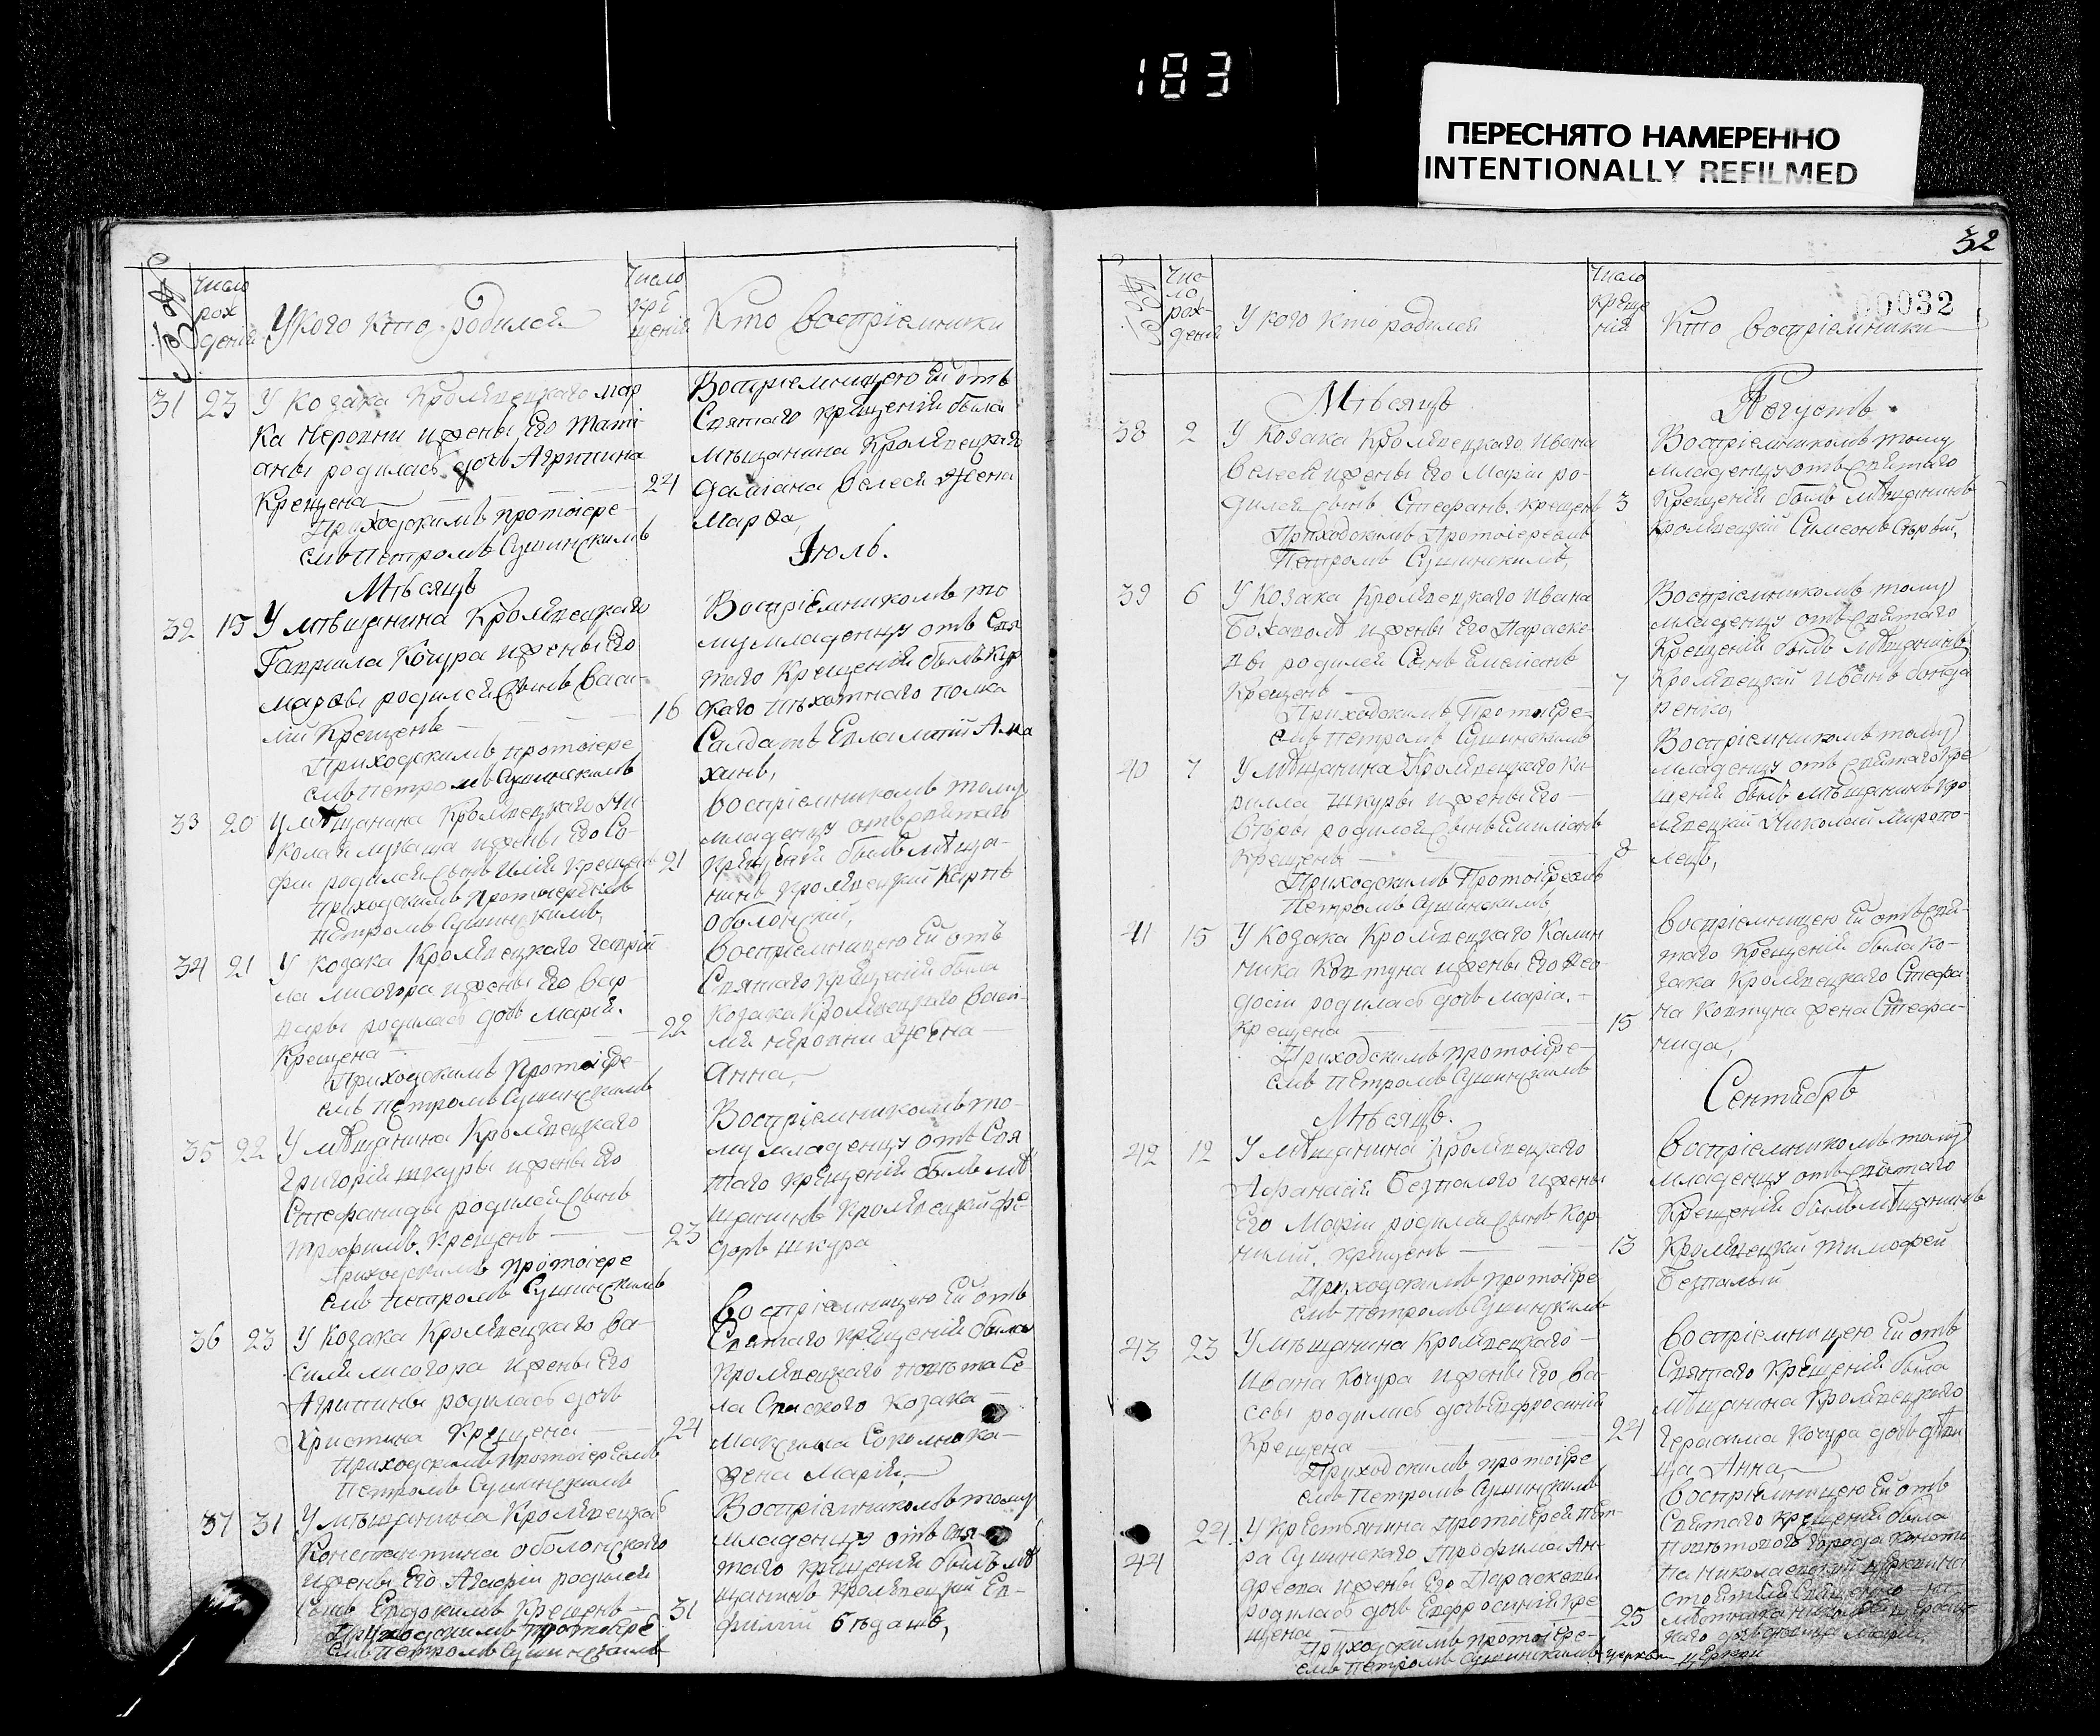 183
ПЕРЕСНЯТО НАМЕРЕННО
INTENTIONALLY REFILMED
32
00032
Число рождений
У кого кто родился
Число крещенія
Кто восприемники
31 23 У козака Кролевецкаго Мар
ка Неровни и жены Его Тати
аны родилась дочь Агрипина
Крещена
Приходскимъ протоіере
емъ Петромъ Сушинскимъ
Воспріемницею Ей отъ
Святаго крещенія была
мѣщанина Кролевецкаго
24 Даміана Велеся Жена
Марѳа,
Мѣсяцъ
Іюль.
32 15 У мѣщанина Кролевецкаго
Гавриила Кочура и жены Его
Марѳы родился Сынъ Васи
лій Крещенъ
Приходскимъ протоіере
емъ Петромъ Сушинскимъ
Воспріемникомъ то
му младенцу отъ Свя
таго Крещенія былъ Кур
16 скаго пѣхотнаго полка
Салдатъ
33 20 У мѣщанина Кролевецкаго Ни
колая и жены Его Со
фіи родился Сынъ Илія Крещенъ
Приходскимъ Протоіереемъ
Петромъ Сушинскимъ,
Воспріемникомъ тому
младенцу отъ Святаго
21 Крещенія былъ мѣща
нинъ Кролевецкій Карпъ
Оболонскій,
34 21 У козака Кролевецкаго Гаврій
ла Лисогора и жены Его Вар
вары родилась дочь Марія.
Крещена
Приходскимъ Протоіере
емъ Петромъ Сушинскимъ
Воспріемницею Ей отъ
Святаго Крещенія была
Козака Кролевецкаго Васи
22 лія Неровни Жена
Анна,
35 22 У мѣщанина Кролевецкаго
Григорія Шкуры и жены Его
Стефаниды родился Сынъ
Трофимъ. Крещенъ
Приходскимъ протоіере
емъ Петромъ Сушинскимъ
Воспріемникомъ то
му младенцу отъ Свя
таго Крещенія былъ мѣ
щанинъ Кролевецкій Фе
23 доръ Шкура
36 23 У Козака Кролевецкаго Ва
силя Лисогора и жены Его
Агрипины родилась дочь
Христина Крещена
Приходскимъ Протоіереемъ
Петромъ Сушинскимъ
Воспріемницею Ей отъ
Святаго Крещенія была
Кролевецкаго повѣта Се
ла Спаского Козака
24 Максима
жена Марія,
37 31 У мѣщанина Кролевецкаго
Константина Оболонскаго
и жены Его Агафіи родился
Сынъ Евдокимъ Крещенъ
Приходскимъ протоіере
емъ Петромъ Сушинскимъ
Воспріемникомъ тому
младенцу отъ Свя
таго Крещенія былъ мѣ
щанинъ Кролевецкій Ев
31 фимій Бѣданъ,
Число рожденій
У кого кто родился
Число крещенія
Кто воспріемники
Мѣсяцъ
Августъ.
38 2 У Козака Кролевецкаго Ивана
Велеся и жены Его Маріи ро
дился сынъ Стефанъ. Крещенъ
Приходскимъ Протоіереемъ
Петромъ Сушинскимъ,
Воспріемникомъ тому
младенцу отъ Святаго
3 Крещенія былъ мѣщанинъ
Кролевецкій Симеонъ
39 6 У Козака Кролевецкаго Ивана
и жены Его Параске
вы родился Сынъ Емеліанъ
Крещенъ
Приходскимъ Протоіере
емъ Петромъ Сушинскимъ
Воспріемникомъ тому
младенцу отъ Святаго
Крещенія былъ мѣщанинъ
7 Кролевецкій Иванъ Бонда
ренко,
40 7 У мѣщанина Кролевецкаго Ки
рилла Шкуры и жены Его
родился Сынъ Емиліанъ
Крещенъ
Приходскимъ Протоіереемъ
Петромъ Сушинскимъ
Воспріемникомъ тому
младенцу отъ Святаго Кре
щенія былъ мѣщанинъ Кро
левецкій Николай Миропо
8 лецъ,
41 15 У Козака Кролевецкаго Калин
ника Ковтуна и жены Его Ѳео
досіи родилась дочь Марія.
Крещена
Приходскимъ протоіере
емъ Петромъ Сушинскимъ
Воспріемницею Ей отъ Свя
таго Крещенія была Ко
зака Кролевецкаго Стефа
15 на Ковтуна жена Стефа
нида,
Мѣсяцъ.
Сентябръ
42 12 У мѣщанина Кролевецкаго
Афанасія Безпалого и жены
Его Маріи родился Сынъ Кор
нилій. Крещенъ
Приходскимъ протоіере
емъ Петромъ Сушинскимъ
Воспріемникомъ тому
младенцу отъ Святаго
Крещенія былъ мѣщанинъ
13 Кролевецкій Тимофей
Безпалый
43 23 У мѣщанина Кролевецкаго
Ивана Кочура и жены Его Ва
ссы родилась дочь Евфросинія
Крещена
Приходскимъ протоіере
емъ Петромъ Сушинскимъ
Воспріемницею Ей отъ
Святаго Крещенія была
мѣщанина Кролевецкаго
24 Герасима Кочура дочь дѣви
ца Анна,
44 24 У Крестьянина Протоіерея Пет
ра Сушинскаго Трофима Ан
дреева и жены Его Параскевы
родилась дочь Евфросинія Кре
щена
Приходскимъ протоіере
емъ Петромъ Сушинскимъ
Воспріемницею Ей отъ
Святаго Крещенія была
повѣтоваго города Коното
па Николаевской
25
дочь дѣвица Марія,
церкви